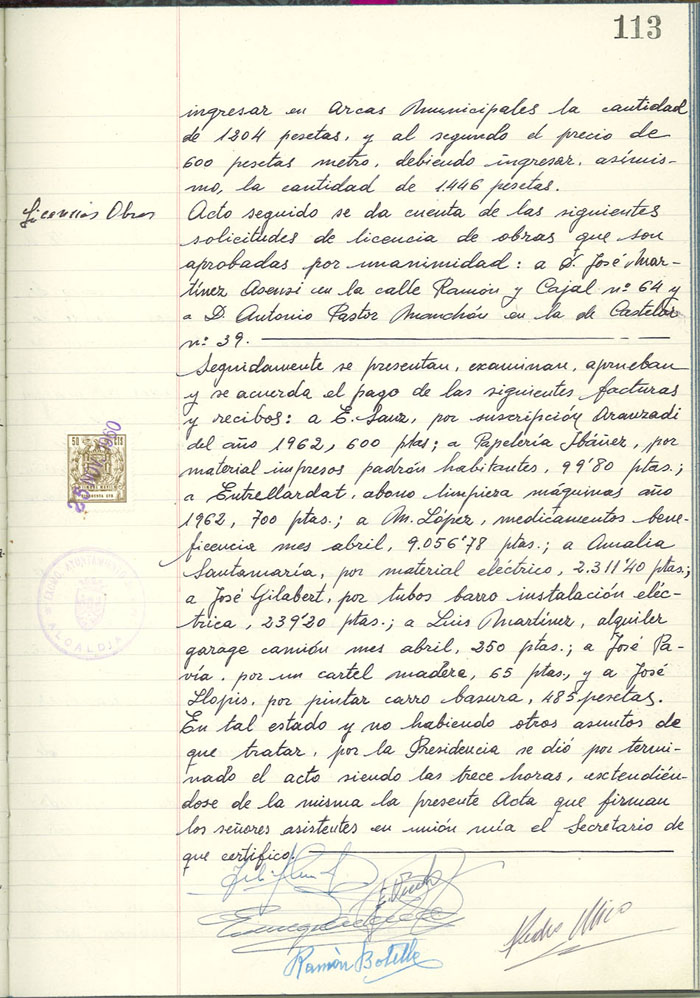 113
ingresar en Arcas Municipales la cantidad
de 1204 pesetas, y al segundo el precio de
600 pesetas metro, debiendo ingresar, asímis-
mo, la cantidad de 1.446 pesetas.
Licencias Obras
Acto seguido se da cuenta de las siguientes
solicitudes de licencia de obras que son
aprobadas por unanimidad: a D. José Mar-
tínez Asensi en la calle Ramón y Cajal nº 64 y
a D Antonio Pastor Manchón en la de Castelar
nº 39.
Seguidamente se presentan, examinan, aprueban
y se acuerda el pago de las siguientes facturas
y recibos: a E. Sanz, por suscripción Aranzadi
del año 1962, 600 ptas; a Papelería Ibáñez, por
material impresos padrón habitantes, 99'80 ptas.;
a Entrellardat, abono limpieza máquinas año
1962, 700 ptas.; a M. López, medicamentos bene-
ficencia mes abril, 9.056'78 ptas.; a Amalia
Santamaría, por material eléctrico, 2.311'40 ptas;
a José Gilabert, por tubos barro instalación eléc-
trica, 239'20 ptas.; a Luis Martínez, alquiler
garage camión mes abril, 250 ptas.; a José Pa-
vía, por un cartel madera, 65 ptas, y a José
Llopis, por pintar carro basura, 485 pesetas.
En tal estado y no habiendo otros asuntos de
que tratar, por la Presidencia se dió por termi-
nado el acto siendo las trece horas, extendién-
dose de la misma la presente Acta que firman
los señores asistentes en unión mía el Secretario de
que certifico.
50 CTS
25 NOV. 1960
AYUNTAMIENTO
ALCALDIA
Ramón Botella
Pedro Micó